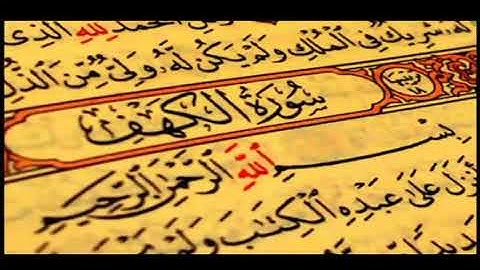 لِلَّهِ ٱلَّذِي
لَّهُۥ شَرِيكٌ فِي ٱلْمُلْكِ وَلَمْ يَكُن لَّهُۥ وَلِيٌّ مِّنَ ٱلذُّلِّ
سُورَةُ الكَهْفِ ١٨
بِسْمِ ٱللَّهِ ٱلرَّحْمَٰنِ ٱلرَّحِيمِ
نزَلَ عَلَىٰ عَبْدِهِ ٱلْكِتَٰبَ وَلَمْ